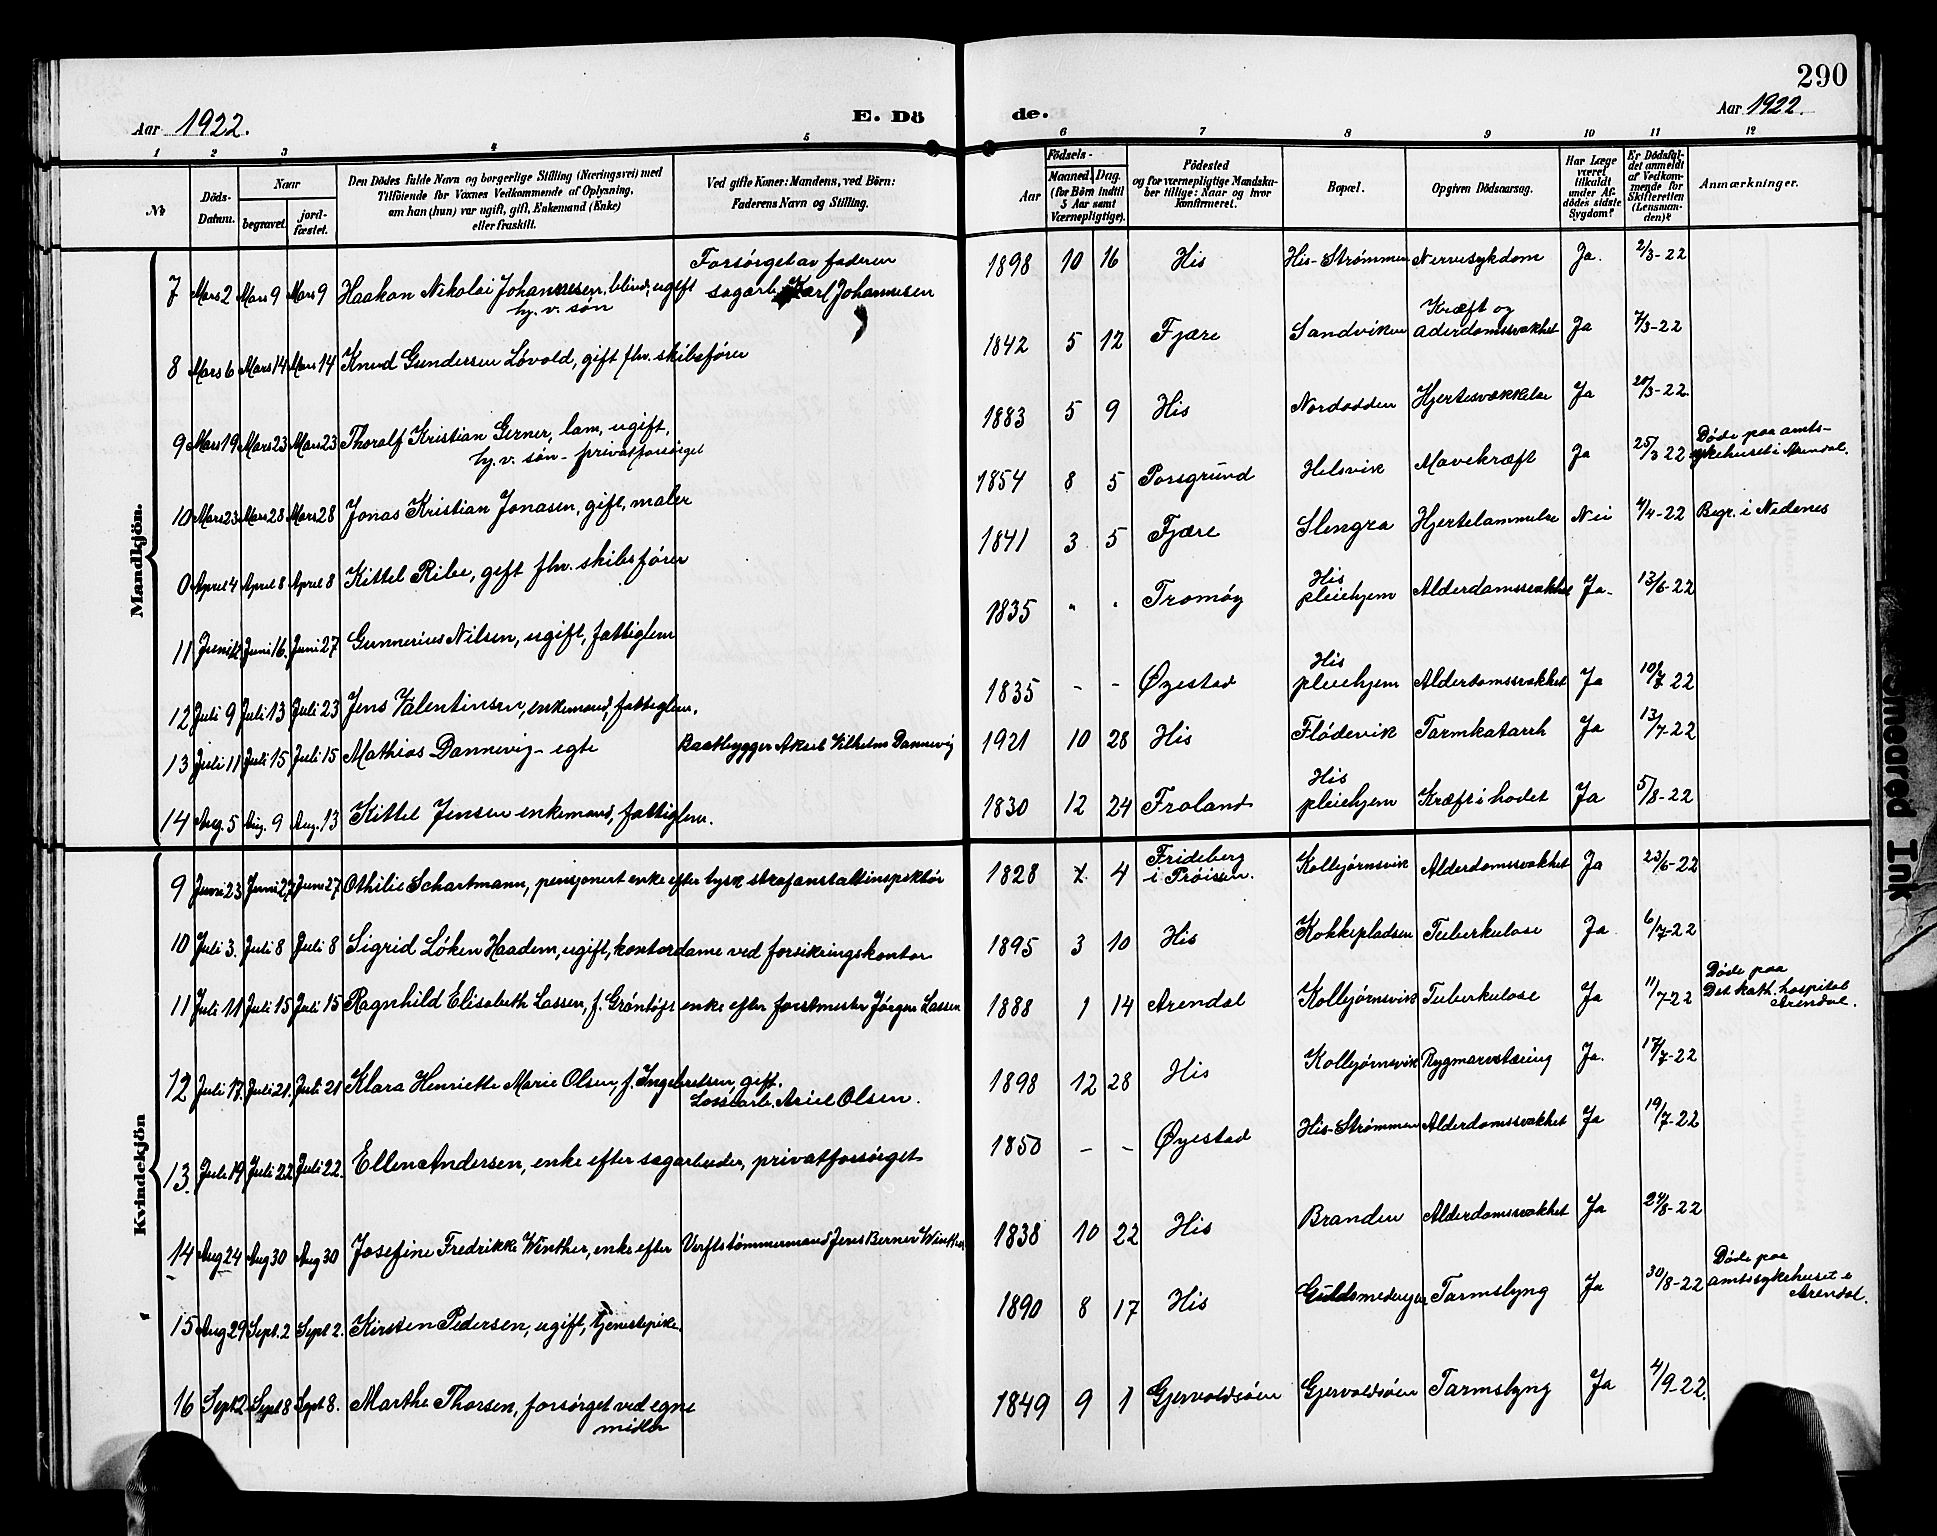 290
Aar 1922.
E. Dö
de.
Aar 1922.
1 2 3 4 5 6 7 8 9 10 11 12
No
Döds-Datum.
Naar
begravet.
jord-fæstet.
Den Dödes fulde Navn og borgerlige Stilling (Næringsvei) med
Tilföiende for Voxnes Vedkommende af Oplysning,
om han (hun) var ugift, gift, Enkemand (Enke)
eller fraskilt.
Ved gifte Koner: Mandens, ved Börn:
Faderens Navn og Stilling.
Födsels-
Aar
Maaned. Dag.
(for Börn indtil
5 Aar samt
Værnepligtige).
Födested
og for værnepligtige Mandskaber tillige: Naar og hvor
konfirmeret.
Bopæl.
Opgiven Dödsaarsag.
Har Læge
været
tilkaldt
under Afdödes sidste
Sygdom?
Er Dödsfaldet anmeldt
af Vedkommende for
Skifteretten
(Lensmanden)?
Anmærkninger.
Mandkjön.
7 Mars 2 Mars 9 Mars 9 Haakon Nikolai Johannesen, blind, ugift hj. v. søn Forsørget av faderen sagarb. Karl Johannesen 1898 10 16 His His-Strømmen Nervesykdom Ja. 2/3-22
8 Mars 6 Mars 14 Mars 14 Knud Gundersen Løvold, gift fhv. skibsfører 1842 5 12 Fjære Sandviken Kræft og aderdomssvakhet Ja 7/3-22
9 Mars 19 Mars 23 Mars 23 Thoralf Kristian Gerner, lam, ugift, hj. v. søn - privatforsørget 1883 5 9 His Nordodden Hjertesvækkelse Ja 20/3-22.
10 Mars 23 Mars 28 Mars 28 Jonas Kristian Jonasen, gift, maler 1854 8 5 Porsgrund Helsvik Mavekræft Ja 25/3 22 Døde paa amts-sykehuset i Arendal.
0 April 4 April 8 April 8 Kittel Ribe, gift fhv. skibsfører 1841 3 5 Fjære Slengra Hjertelammelse Nei 4/4-22 Begr. i Nedenes
11 Juni 12 Juni 16. Juni 27 Gunnerius Nilsen, ugift, fattiglem 1835 " " Tromøy His pleiehjem Alderdomssvakhet Ja- 13/6-22
12 Juli 9 Juli 13 Juli 23 Jens Valentinsen, enkemand, fattiglem. 1835 - - Øyestad His pleiehjem Alderdomssvakhet Ja 10/7 22
13 Juli 11 Juli 15 Juli 15 Mathias Dannevig - egte Baatbygger Aksel Vilhelm Dannevig 1921 10 28 His Flødevik Tarmkatarrh Ja 13/7-22
14 Aug. 5 Aug. 9 Aug. 13 Kittel Jensen enkemand, fattiglem. 1830 12 24 Froland His pleiehjem Kræft i hodet Ja 5/8-22
Kvindekjön
9 Juni 23 Juni 27 Juni 27 Othilie Schartmann, pensjonert enke efter tysk strafanstaltinspektør 1828 7 4 Frideberg i Prøisen. Kolbjørnsvik Alderdomssvakhet Ja 23/6-22
10 Juli 3. Juli 8 Juli 8 Sigrid Løken Haadem, ugift, kontordame ved forsikringskontor 1895 3 10 His Kokkepladsen Tuberkulose Ja 6/7-22
11 Juli 11 Juli 15 Juli 15 Ragnhild Elisabeth Lassen, f. Grøntoft enke efter forstmester Jørgen Lassen 1888 1 14 Arendal Kolbjørnsvik Tuberkulose Ja 11/7-22 Døde paa Det kath. hospital Arendal.
12 Juli 17. Juli 21. Juli 21 Klara Henriette Marie Olsen, f. Ingebretsen, gift. Lossearb. Ariel Olsen. 1898 12 28 His Kolbjørnsvik Rygmarvstæring Ja. 17/7-22
13. Juli 19 Juli 22 Juli 22. Ellen Andersen, enke efter sagarbeider, privatforsørget 1850 - - Øyestad His-Strømmen Alderdomssvakhet Ja 19/7-22
14 Aug 24 Aug 30 Aug 30 Josefine Fredrikke Winther, enke efter Verftstømmermand Jens Berner Winther 1838 10 22 His Branden Alderdomssvakhet Ja 24/8-22
15 Aug 29 Sept. 2 Sept 2. Kirsten Pedersen, ugift, tjenestepike. 1890 8 17 His Guldsmedengen Tarmslyng Ja 30/8-22 Døde paa amtssykehuset i Arendal.
16 Sept 2 Sept 8 Sept 8. Marthe Thorsen, forsørget ved egne midler 1849 9 1 Gjervoldsøen Gjervoldsøen Tarmslyng Ja 4/9-22.
Smeared Ink